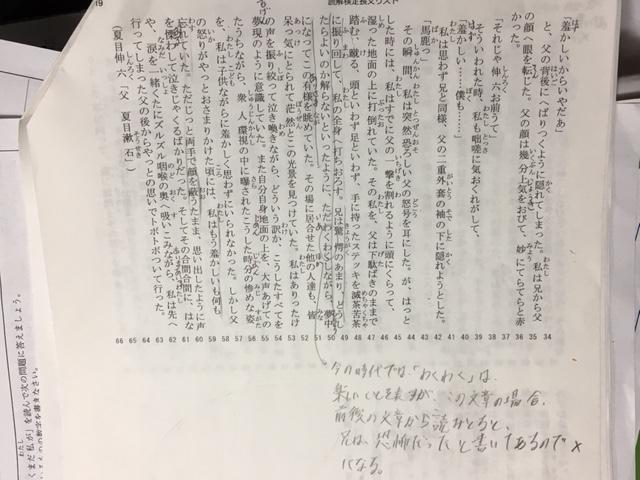 読解検定長文リスト
「羞かしいからいやだあ」
と、父の背後にへばりつくように隠れてしまった。私は兄から父
の顔へ眼を転じた。父の顔は幾分上気をおびて、妙にてらてらと赤
かった。
「それじゃ伸六お前うて」
そういわれた時、私も咄嗟に気おくれがして、
「羞かしい……僕も……」
私は思わず兄と同様、父の二重外套の袖の下に隠れようとした。
「馬鹿っ」
その瞬間、私は突然恐ろしい父の怒号を耳にした。が、はっと
した時には、私はすでに父の一撃を割れるように頭にくらって、
湿った地面の上に打倒れていた。その私を、父は下駄ばきのままで
踏む、蹴る、頭といわず足といわず、手に持ったステッキを滅茶苦茶
に振り回して、私の全身へ打ちおろす。兄は驚愕のあまり、どうし
たらよいのか解らないといったように、ただわくわくしながら、夢中
になってこの有様を眺めていた。その場に居合せた他の人達も、皆
呆っ気にとられて茫然とこの光景を見つけていた。私はありったけ
の声を振り絞って泣き喚きながら、どういう訳か、こうしたすべてを
夢現のように意識していた。また自分自身地面の上を、大声あげての
たうちながら、衆人環視の中に曝されたこうした時分の惨めな姿
を、私は子供ながらに羞かしく思わずにいられなかった。しかし父
の怒りがやっとおさまりかけた頃には、私はもう羞かしいも何も
忘れていた。ただじっと両手で顔を蔽うたまま、思い出したように声
を慄わして泣きじゃくるばかりだった。そしてその合間合間に、はな
や、涙を一緒くたにズルズル咽喉の奥へ吸いこみながら、私は先へ
行ってしまった父の後からやっとの思いでトボトボついて行った。
(夏目伸六「父 夏目漱石」)
34
35
36
37
38
39
40
41
42
43
44
45
46
47
48
49
50
51
52
53
54
55
56
57
58
59
60
61
62
63
64
65
66
今の時代では、「わくわく」は、
楽しいことを表すが、この文章の場合、
前後の文章から読みとると、
兄は、恐怖だったと書いてあるので×
になる。
を読んで次の問題に答えましょう。